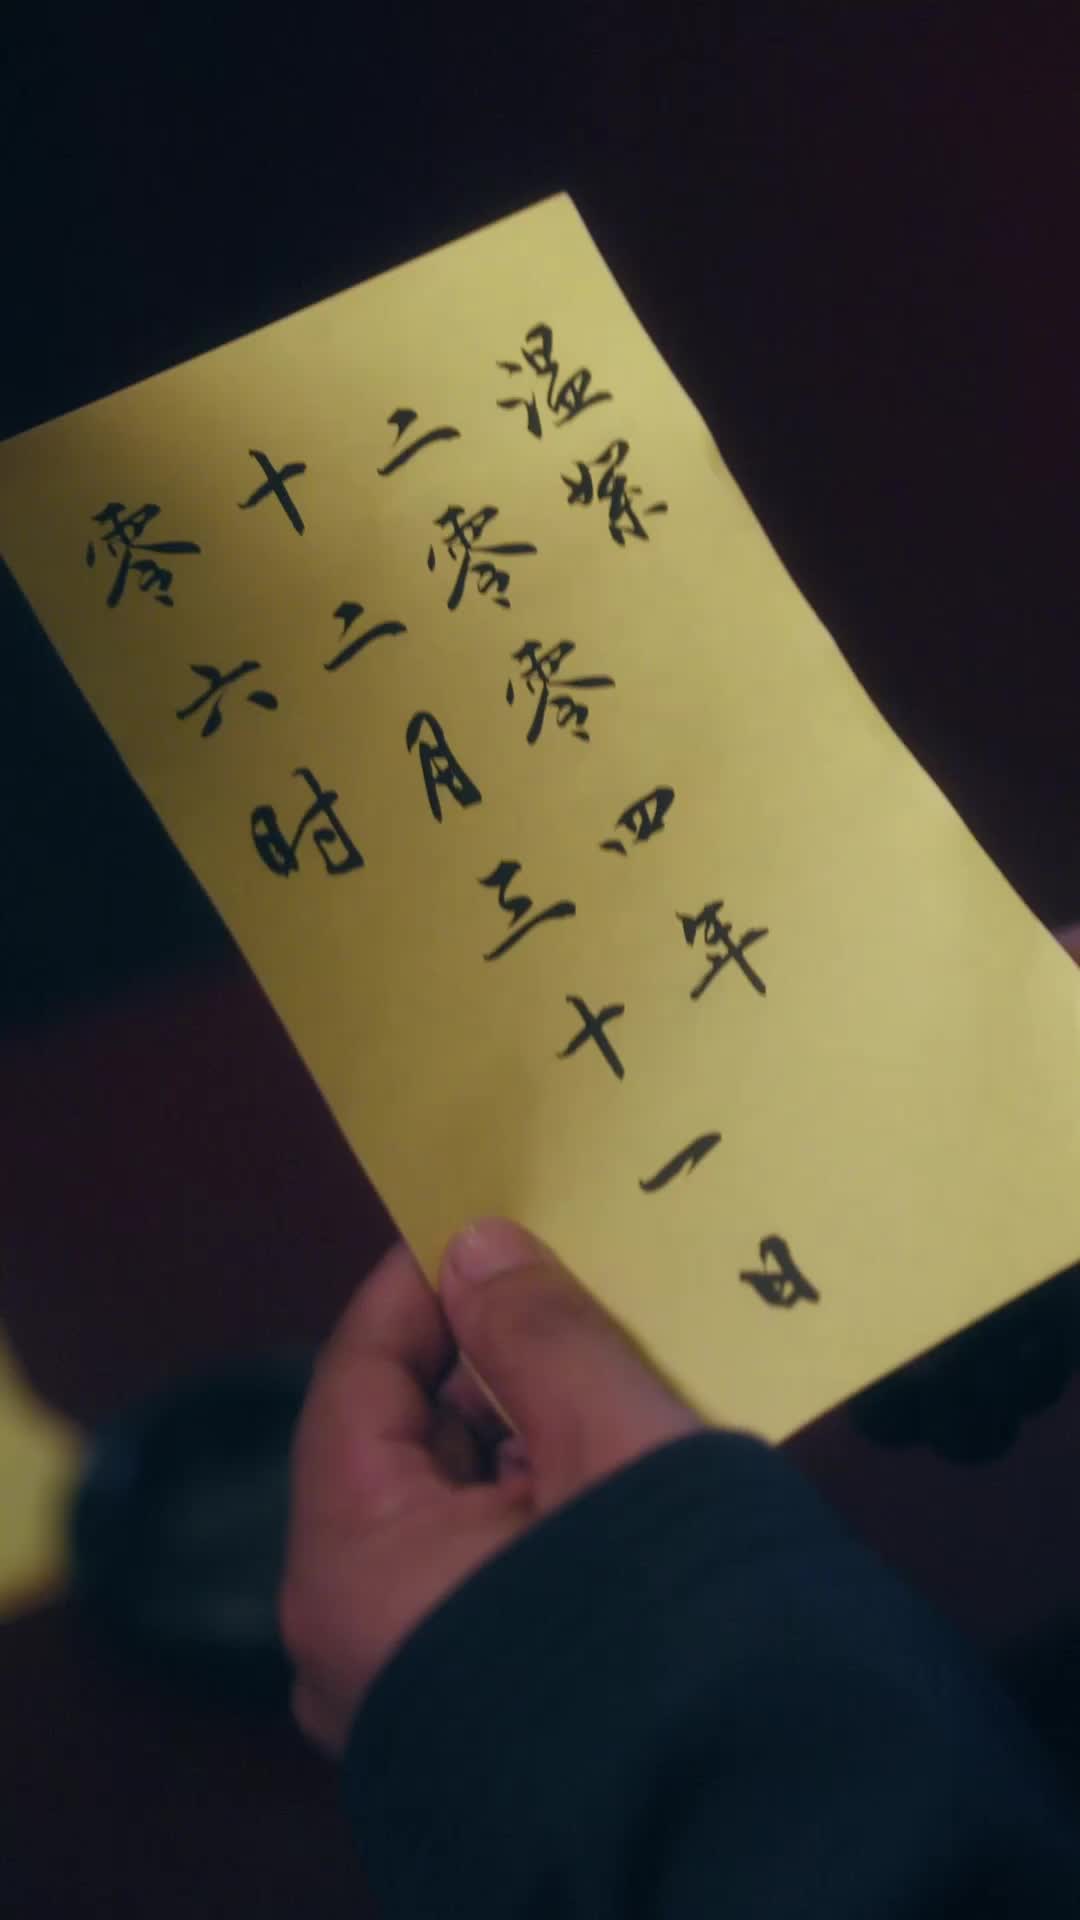 温
二零零四年
十二月三十一日
零六时